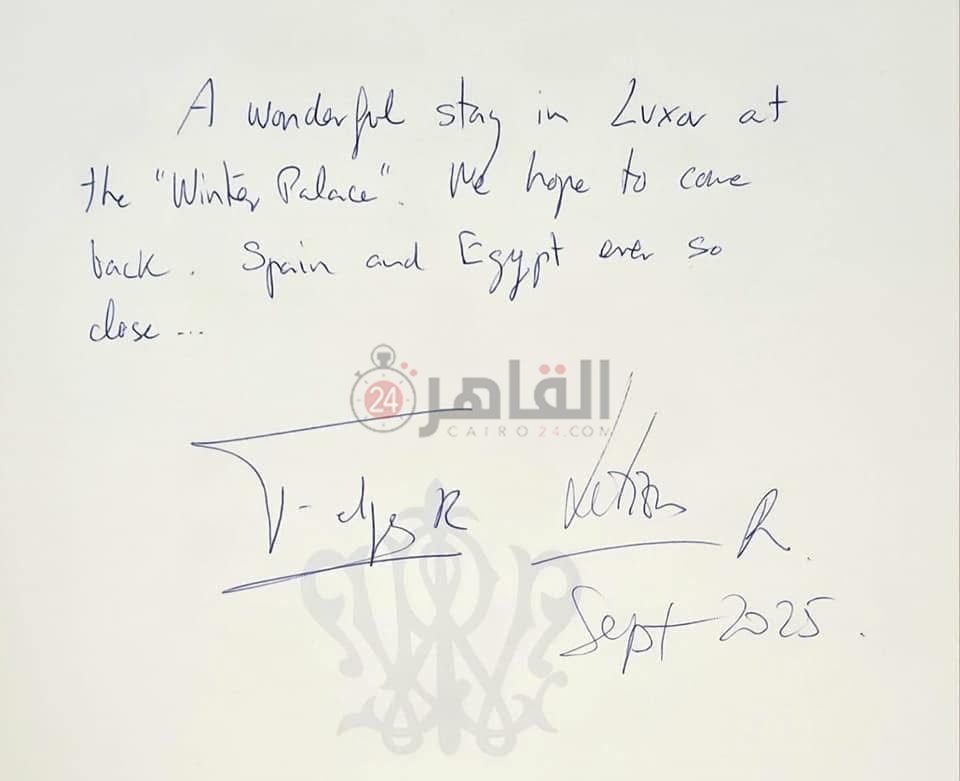 A wonderful stay in Luxor at
the "Winter Palace". We hope to come
back. Spain and Egypt ever so
close ...
القاهرة 24
CAIRO24.COM
Felipe R
Letizia R.
Sept 2025.